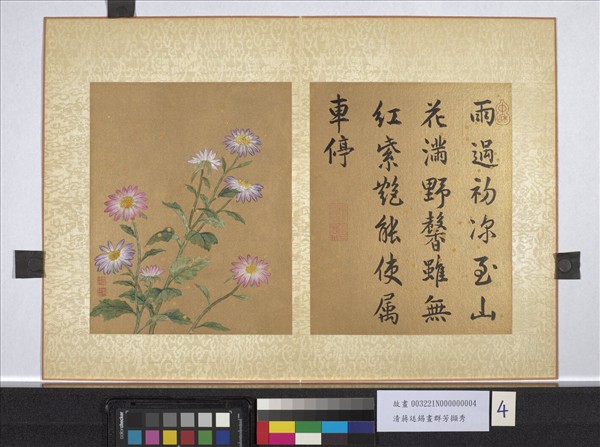 雨過初涼至山
花滿野馨雖無
紅紫艷能使属
車停
故畫 003221N000000004
清蔣廷錫畫群芳擷秀
4